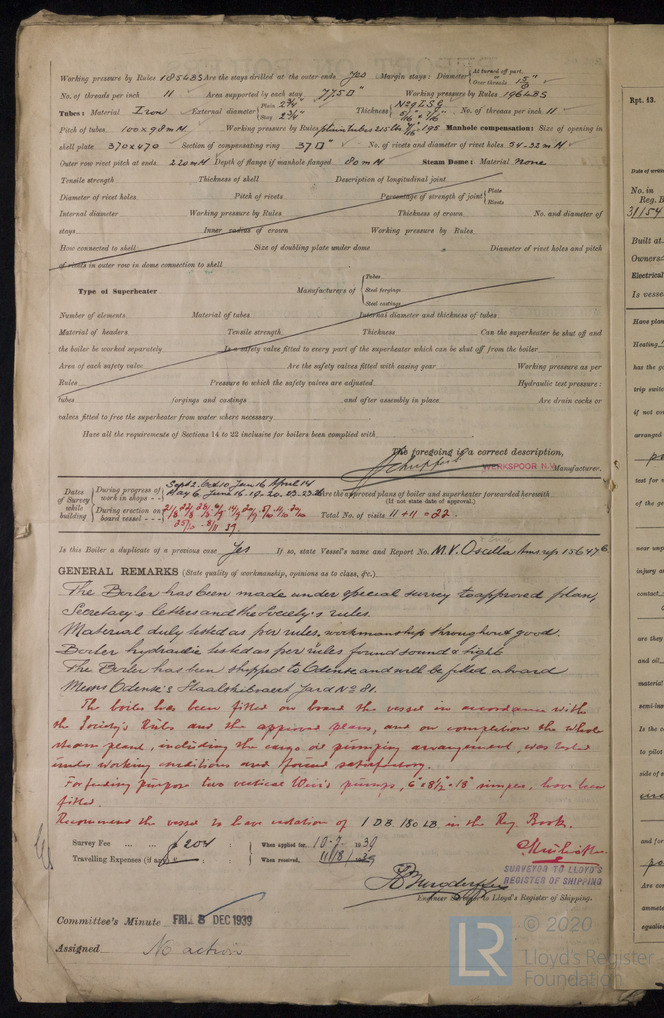 Working pressure by Rules 185 LBS Are the stays drilled at the outer ends Yes Margin stays: Diameter { At turned off part, or Over threads 1 5/8"
No. of threads per inch 11 Area supported by each stay 77,5 □" Working pressure by Rules 196 LBS
Tubes: Material Iron External diameter { Plain 2 3/4" Stay 2 3/4" Thickness { No 9 L.S.G. 5/16" & 1/16" No. of threads per inch 11
Pitch of tubes 100 x 98 mM Working pressure by Rules plain tubes 215 lbs 195 Manhole compensation: Size of opening in
shell plate 370 x 470 Section of compensating ring 37 □" No. of rivets and diameter of rivet holes 34-32 mM
Outer row rivet pitch at ends 220 mM Depth of flange if manhole flanged 80 mM Steam Dome: Material None
Tensile strength Thickness of shell Description of longitudinal joint
Diameter of rivet holes Pitch of rivets Percentage of strength of joint { Plate Rivets
Internal diameter Working pressure by Rules Thickness of crown No. and diameter of
stays Inner radius of crown Working pressure by Rules
How connected to shell Size of doubling plate under dome Diameter of rivet holes and pitch
of rivets in outer row in dome connection to shell
Type of Superheater Manufacturers of { Tubes Steel forgings Steel castings
Number of elements Material of tubes Internal diameter and thickness of tubes
Material of headers Tensile strength Thickness Can the superheater be shut off and
the boiler be worked separately Is a safety valve fitted to every part of the superheater which can be shut off from the boiler
Area of each safety valve Are the safety valves fitted with easing gear Working pressure as per
Rules Pressure to which the safety valves are adjusted Hydraulic test pressure:
tubes forgings and castings and after assembly in place Are drain cocks or
valves fitted to free the superheater from water where necessary
Have all the requirements of Sections 14 to 22 inclusive for boilers been complied with
The foregoing is a correct description,
WERKSPOOR N.V. Manufacturer.
Dates of Survey while building { During progress of work in shops - - Sept 2. Oct 10, Jan 16 April 14 May 6. June 16-19-20-23-23 Are the approved plans of boiler and superheater forwarded herewith (If not state date of approval.)
During erection on board vessel - - - Total No. of visits 11 + 11 = 22.
Is this Boiler a duplicate of a previous case Yes If so, state Vessel's name and Report No. M.V. Oscilla Ams rep 15647 B
GENERAL REMARKS (State quality of workmanship, opinions as to class, &c.)
The Boiler has been made under special survey to approved plan,
Secretary's letters and the Society's rules.
Material duly tested as per rules, workmanship throughout good.
Boiler hydraulic tested as per rules found sound & tight
The Boiler has been shipped to Odense and will be fitted aboard
Messrs Odense's Staalskibsvaerft Yard No 81.
The boiler has been fitted on board the vessel in accordance with
the Society's Rules and the approved plans, and on completion the whole
steam plant, including the cargo oil pumping arrangement, was tested
under working conditions and found satisfactory.
For feeding purpose two vertical Weir's pumps, 6" x 8 1/2" x 18" simplex, have been
fitted.
Recommend the vessel to have notation of 1 D.B. 180 LB. in the Reg. Book.
Survey Fee ... ... £ 204 : When applied for, 10-7-1939
Travelling Expenses (if any) £ : When received, 11/18/1939
SURVEYOR TO LLOYD'S
REGISTER OF SHIPPING
Engineer Surveyor to Lloyd's Register of Shipping.
Committee's Minute FRI. 8 DEC 1939
Assigned No action
© 2020
LR Lloyd's Register
Foundation
Rpt. 13.
Date of writ
No. in
Reg. B
31154
Built at
Owners
Electrical
Is vesse
Have plan
Heating
has the go
trip switc
If not co
arranged
test for
of the go
near unp
injury a
contact
are they
and oil
material
semi-lu
Is the c
to pilot
side of s
and for
Are co
ammete
equalise